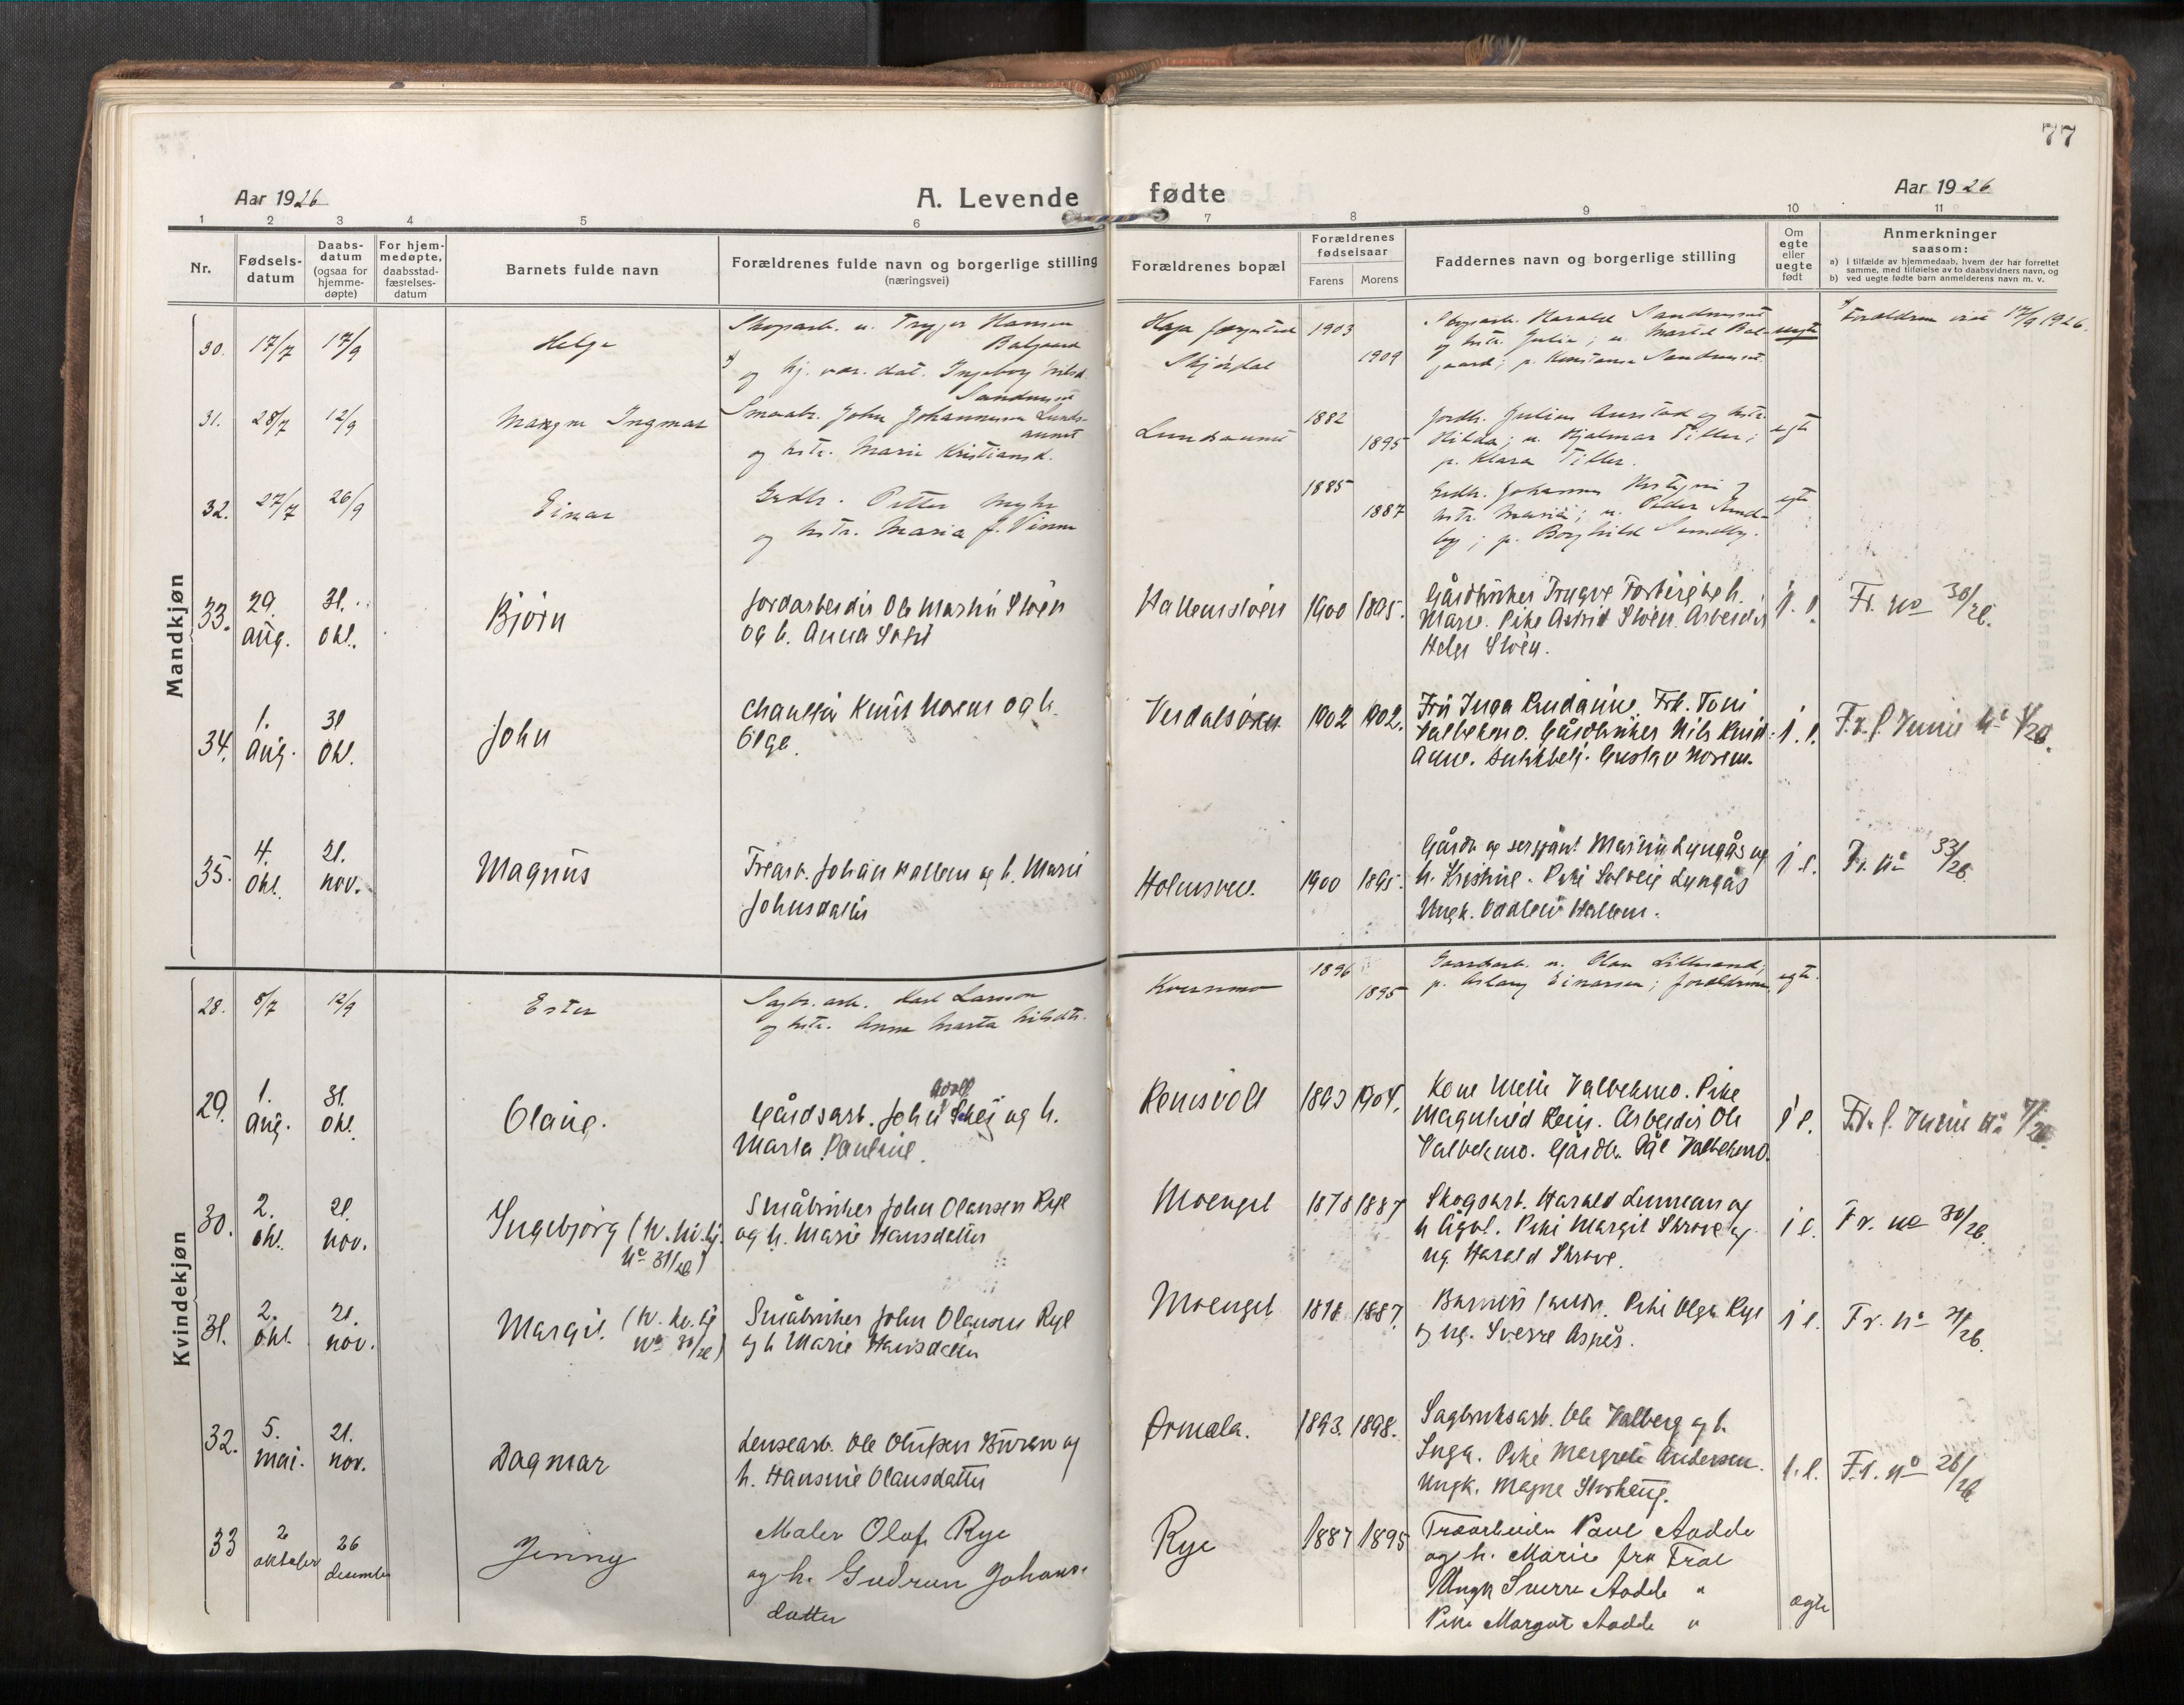 77
Aar 1926
A. Levende
fødte
Aar 1926
1 2 3 4 5 6 7 8 9 10 11
Nr.
Fødsels-
datum
Daabs-
datum
(ogsaa for
hjemme-
døpte)
For hjem-
medøpte,
daabsstad-
fæstelses-
datum
Barnets fulde navn
Forældrenes fulde navn og borgerlige stilling
(næringsvei)
Forældrenes bopæl
Forældrenes
fødselsaar
Farens Morens
Faddernes navn og borgerlige stilling
Om
egte
eller
uegte
født
Anmerkninger
saasom:
a) i tilfælde av hjemmedaab, hvem der har forrettet
samme, med tilføielse av to daabsvidners navn, og
b) ved uegte fødte barn anmelderens navn m. v.
Mandkjøn
30. 17/7 17/9 Helge
Hansen
Balgaard
og hj. vær. dat. Ingeborg
Skjørdal
1903
1909
Harald
og hstr. Julie;
uegte
17/9 1926.
31. 28/7 12/9 Magne Ingmar
Smaabr. John Johannesen Lunds-
aunet
og hstr. Marie Kristiansd.
Lundsaunet
1882
1895
Jordbr. Julius Aunstad og hstr.
Hilda; u. Hjalmar Tiller;
p. Klara Tiller.
egte
32. 27/7 26/9 Einar
Grdbr. Petter Myhr
og hstr. Maria f. Vinne
1885
1887
Grdbr. Johannes
hstr. Maria; u. Peder Sund-
by; p. Borghild Sundby.
egte
33. 29. aug. 31. okt. Björn
Jordarbeider Ole Martin Sloën
og h. Anna Sofie
Hallemsloën 1900 1895.
Gårdbruker Trygve Forbergbe h.
Marie. Pike Astrid Sloën. Arbeider
Helge Sloën.
Fr. no 30/26.
34. 1. aug. 31 okt. John
Chauffør Knut Norem og h.
Olga.
Verdalsøren 1902 1902.
Fru Inga Rudaune. Frk. Toni
Valbekmo. Gårdbruker Nils Rud-
aune. Gustav Norem.
35. 4. okt. 21. nov. Magnus
Johan Hallem og h. Marie
Johnsdatter
Holmsveet. 1900 1895.
Gårdbr og sersjant Martin Lyngås og
h. Kristine. Pike Solveig Lyngås
Ungk. Oddleiv Hallem.
Fr. no 33/26.
Kvindekjøn
28. 8/7 12/9 Ester
Sagbr. arb. Karl Larsen
og hstr. Anna Marta Nilsdtr.
Kvernmo
1896
1895
Gaardarb. u. Olav Lillesand;
p. Aslaug Einarsen; forældrene
egte.
29. 1. aug. 31. okt. Olaug.
Gårdsarb. John Skei og h.
Marta Pauline.
1893 1904.
Kone Melie Valbekmo. Pike
Magnhild Rein. Arbeider Ole
Valbekmo. Gårdbr. Pål Valbekmo.
30. 2. okt. 21. nov. Ingebjörg (tv. kv. kj.
no 31/26)
Småbruker John Olausen Rye
og h. Marie Hansdatter
Moenget 1878 1887
Skogsarb. Harald Lunnan og
h Ågot. Pike Margit Skrove og
ug. Harald Skrove.
Fr. no 30/26.
31. 2. okt. 21. nov. Margit. (tv. kv. kj
no 30/26)
Småbruker John Olausen Rye
og h Marie Hansdatter
Moenget 1878. 1887.
Barnets foreldre. Pike Olga Rye
og ug. Sverre Aspås.
Fr. no 31/26.
32. 5. mai. 21. nov. Dagmar
Lensearb. Ole Olufsen Buran og
h. Hansine Olausdatter
Ørmela. 1893. 1898.
Sagbruksarb. Ole Valberg og h.
Inga. Pike Margrete Andersen.
Ungk. Magne Storhaug.
Fr. no 26/26
33 2 oktober 26 desember Jenny
Maler Olaf Rye
og h. Gudrun Johans-
datter
Rye 1887 1895
Træarbeider Paul Aadde
og h. Marie fra Frol
Ungk Sverre Aadde "
Pike Margot Aadde "
ægte